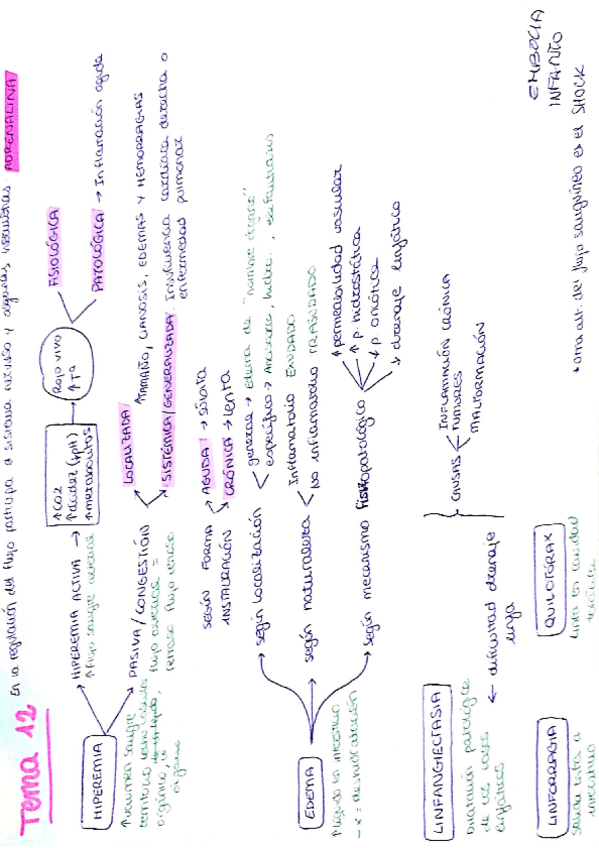 Tema 12
En la regulación del flujo participa el sistema nervioso y algunas ADRENALINA
HIPEREMIA
↑volumen sangre
territorio
orgánico, o
órgano
HIPEREMIA ACTIVA →
↑flujo sangre arterial
↑CO2
↑acidez (↓pH)
↑metabolitos
Rojo vivo
↑Tª
FISIOLÓGICA
PATOLÓGICA → Inflamación aguda
PASIVA/CONGESTIÓN
flujo arterial =
retraso flujo venoso
LOCALIZADA
SISTÉMICA/GENERALIZADA: Insuficiencia cardíaca derecha o
enfermedad pulmonar
↑TAMAÑO, CIANOSIS, EDEMAS Y HEMORRAGIAS
SEGÚN FORMA
INSTAURACIÓN
AGUDA → súbita
CRÓNICA → lenta
EDEMA
↑líquido en intersticio
- x = deshidratación
según localización
general → Edema de "nombre órgano"
específico → Anasarca, hidro...,
según naturaleza
Inflamatorio EXUDADO
No inflamatorio TRASUDADO
según mecanismo fisiopatológico
↑permeabilidad vascular
↑p hidrostática
↓p oncótica
↓ drenaje linfático
LINFANGIECTASIA
Dilatación patológica
de los vasos
linfáticos
← dificultad drenaje
linfa
CAUSAS
INFLAMACIÓN CRÓNICA
TUMORES
MALFORMACIÓN
LINFORRAGIA
Salida linfa a
intersticio
QUILOTÓRAX
Linfa en cavidad
torácica
EMBOLIA
INFARTO
* otra alt. del flujo sanguíneo es el SHOCK